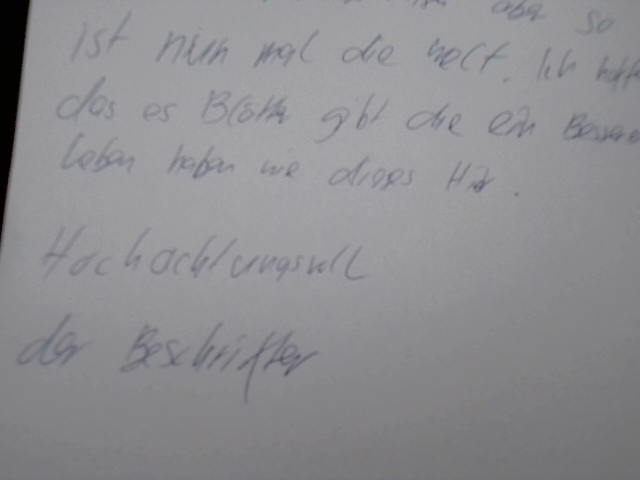 aber so
ist nun mal die welt. Ich hoffe
das es Blätter gibt die ein
leben haben wie dieses Hir.
Hochachtungsvoll
der Beschrifter